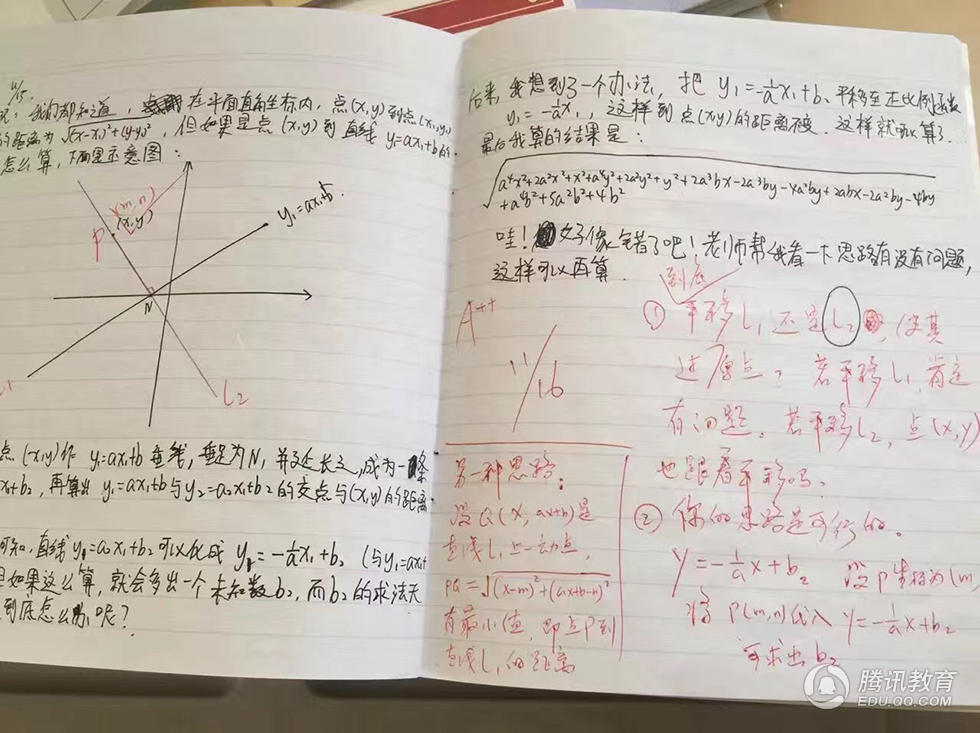 11/5.
我们都知道，在平面直角坐标内，点(x,y)到点(x₁,y₁)
的距离为√(x-x₁)²+(y-y₁)²，但如果是点(x,y)到直线y=ax₁+b的
怎么算，下面显示意图：
(m,n)
(x,y)
P
y₁=ax₁+b.
N
L2
点(x,y)作y₁=ax₁+b垂线，垂足为N，并延长之，成为一条
x₁+b₂，再算出y₁=ax₁+b与y₂=a₂x₁+b₂的交点与(x,y)的距离
可知，直线y₂=a₂x₁+b₂可以化成y₂=-1/a x₁+b₂（与y₁=ax₁+
如果这么算，就会多出一个未知数b₂，而b₂的求法天
到底怎么办呢？
后来，我想到了一个办法，把y₁=-1/a x₁+b₂平移至正比例函数
y₁=-1/a x₁，这样到点(x,y)的距离不变．这样就可以算了．
最后我算的结果是：
√a⁴x²+2a²x²+x²+a⁴y²+2a²y²+y²+2a³bx-2a³by-4a²by+2abx-2a²by-4by
+a⁴b²+5a²b²+4b²
哇！好像算错了吧！老师帮我看一下思路有没有问题，
这样可以再算．
A++
11/16
到底
① 平移L₁还是L₂，使其
过原点？若平移L₁，肯定
有问题。若平移L₂，点(x,y)
也跟着平移吗。
② 你的思路是可行的。
y=-1/a x+b₂ 设P坐标为(m,
将P(m,n)代入y=-1/a x+b₂
可求出b₂
另一种思路：
设Q(x,ax+b)是
直线L₁上一动点，
PQ=√(x-m)²+(ax+b-n)²
有最小值，即点P到
直线L₁的距离
腾讯教育
EDU.QQ.COM